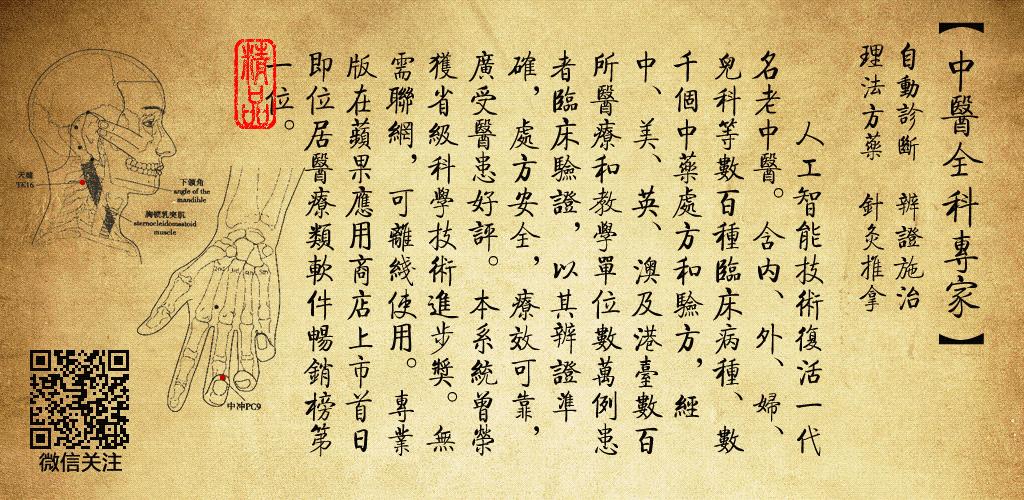 【中醫全科專家】
自動診斷 辨證施治
理法方藥 針灸推拿
人工智能技術復活一代
名老中醫。含内、外、婦、
兒科等數百種臨床病種、數
千個中藥處方和驗方，經
中、美、英、澳及港臺數百
所醫療和教學單位數萬例患
者臨床驗證，以其辨證準
確，處方安全，療效可靠，
廣受醫患好評。本系統曾榮
獲省級科學技術進步獎。無
需聯網，可離綫使用。專業
版在蘋果應用商店上市首日
即位居醫療類軟件暢銷榜第
一位。
精品
天牖
TE16
下頜角
angle of the
mandible
胸锁乳突肌
sternocleidomastoid
muscle
中冲PC9
微信关注